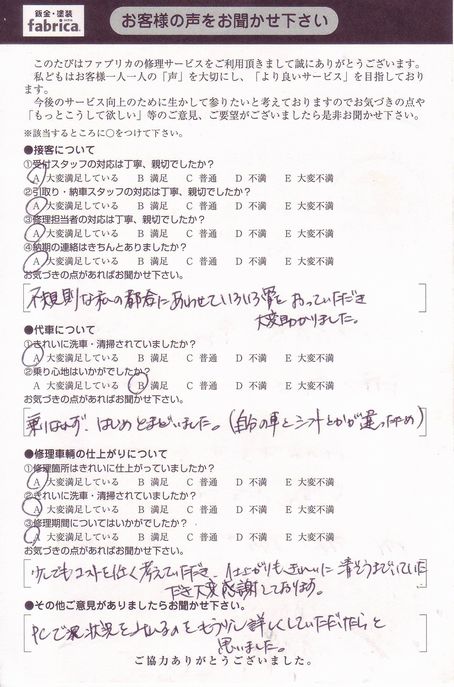 鈑金・塗装
fabrica.
お客様の声をお聞かせ下さい
このたびはファブリカの修理サービスをご利用頂きまして誠にありがとうございます。
私どもはお客様一人一人の「声」を大切にし、「より良いサービス」を目指しており
ます。
今後のサービス向上のために生かして参りたいと考えておりますのでお気づきの点や
「もっとこうして欲しい」等のご意見、ご要望がございましたら是非お聞かせ下さい。
※該当するところに○をつけて下さい。
●接客について
①受付スタッフの対応は丁寧、親切でしたか?
A 大変満足している B 満足 C 普通 D 不満 E 大変不満
②引取り・納車スタッフの対応は丁寧、親切でしたか?
A 大変満足している B 満足 C 普通 D 不満 E 大変不満
③修理担当者の対応は丁寧、親切でしたか?
A 大変満足している B 満足 C 普通 D 不満 E 大変不満
④納期の連絡はきちんとありましたか?
A 大変満足している B 満足 C 普通 D 不満 E 大変不満
お気づきの点があればお聞かせ下さい。
不規則な私の都合にあわせていろいろ骨をおっていただき
大変助かりました。
●代車について
①きれいに洗車・清掃されていましたか?
A 大変満足している B 満足 C 普通 D 不満 E 大変不満
②乗り心地はいかがでしたか?
A 大変満足している B 満足 C 普通 D 不満 E 大変不満
お気づきの点があればお聞かせ下さい。
乗りなれず、はじめとまどいました。(自分の車とシートとかが違ったため)
●修理車輌の仕上がりについて
①修理箇所はきれいに仕上がっていましたか?
A 大変満足している B 満足 C 普通 D 不満 E 大変不満
②きれいに洗車・清掃されていましたか?
A 大変満足している B 満足 C 普通 D 不満 E 大変不満
③修理期間についてはいかがでしたか?
A 大変満足している B 満足 C 普通 D 不満 E 大変不満
お気づきの点があればお聞かせ下さい。
少しでもコストを低く考えていただき、仕上がりもきれいに 清そうまでしていた
だき大変感謝しております。
●その他ご意見がありましたらお聞かせ下さい。
PCで 状況を のをもう少し詳しくしていただけたらと
思いました。
ご協力ありがとうございました。